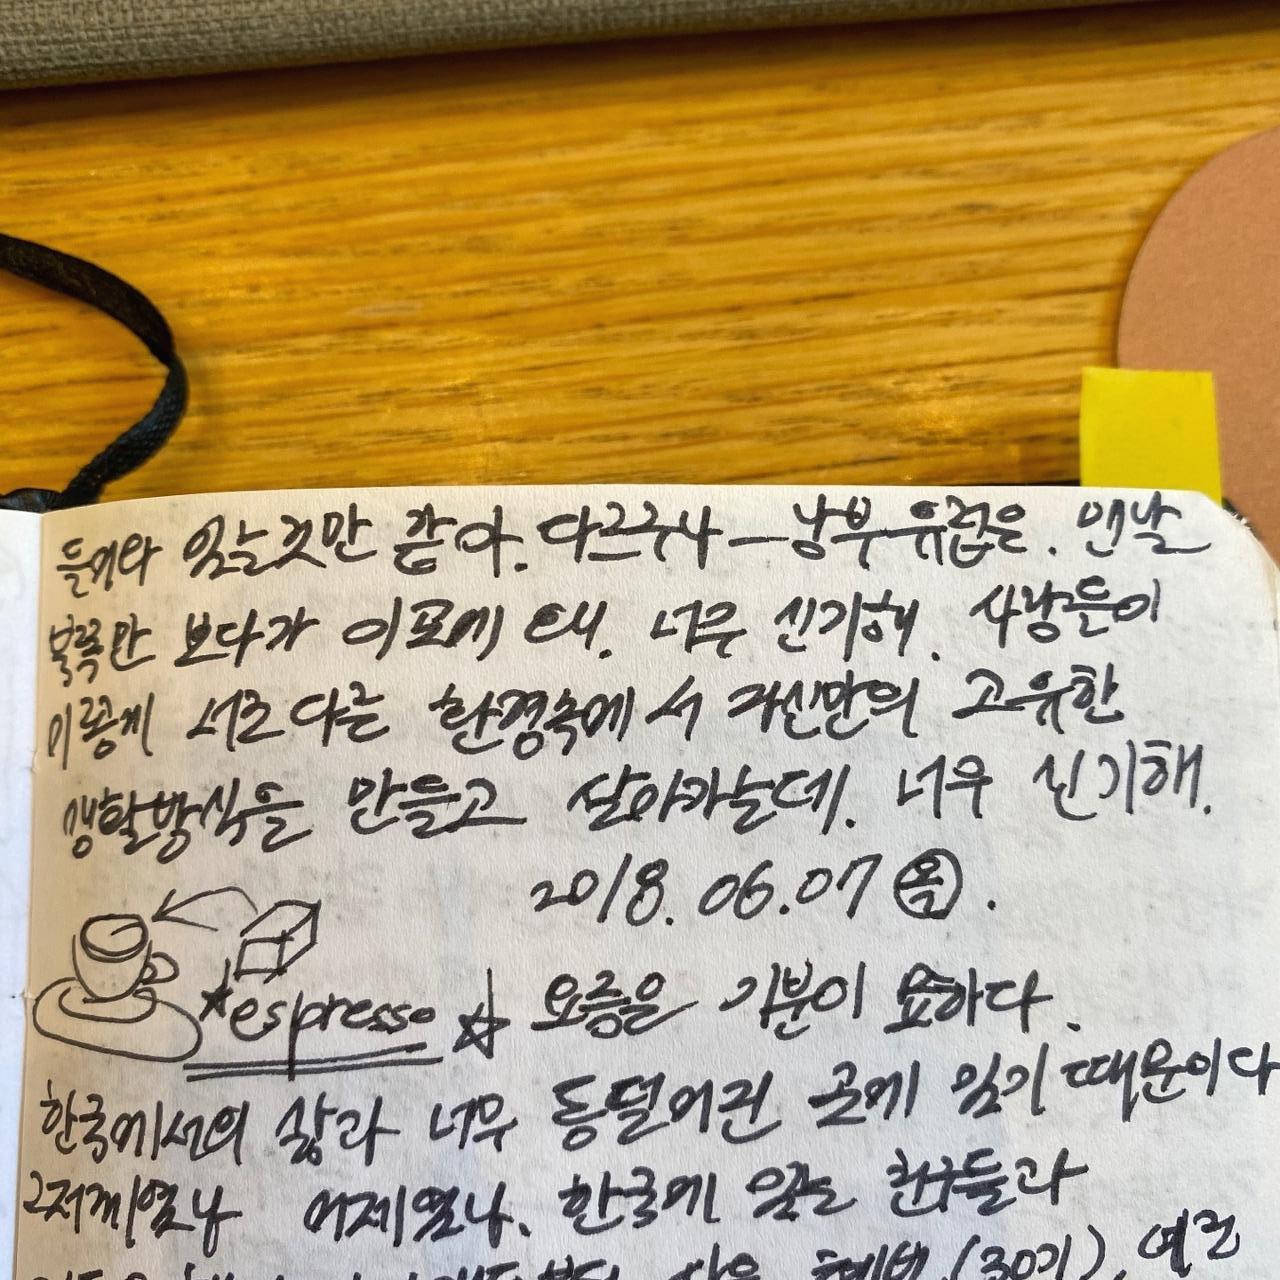 들어와 있는것만 같아. 다르구나 — 남부유럽은. 맨날
북쪽만 보다가 이포에 돼. 너무 신기해. 사람들이
이렇게 서로 다른 환경속에서 자신만의 고유한
생활방식을 만들고 살아가는데. 너무 신기해.
2018. 06.07 목.
*espresso ☆ 요즘은 기분이 묘하다.
한국에서의 삶과 너무 동떨어진 곳에 있기 때문이다
그저께였나 어제였나. 한국에 있는 친구들과
(30기).